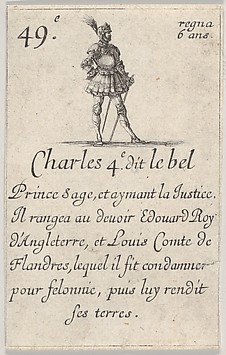 49.e
regna
6 ans.
Charles 4.e dit le bel
Prince sage, et aymant la Justice.
Il rangea au deuoir Edouard Roy
d'Angleterre, et Louis Comte de
Flandres, lequel il fit condamner
pour felonnie, puis luy rendit
ses terres.